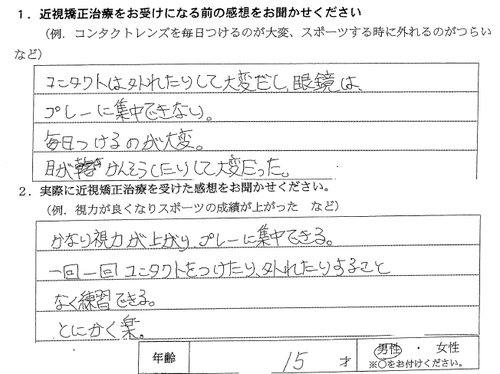 1．近視矯正治療をお受けになる前の感想をお聞かせください
（例．コンタクトレンズを毎日つけるのが大変、スポーツする時に外れるのがつらい
など）
コンタクトは外れたりして大変だし、眼鏡は、
プレーに集中できない。
毎日つけるのが大変。
目がかんそうしたりして大変だった。
2．実際に近視矯正治療を受けた感想をお聞かせください。
（例．視力が良くなりスポーツの成績が上がった　など）
かなり視力が上がり、プレーに集中できる。
一回一回コンタクトをつけたり、外れたりすること
なく練習できる。
とにかく楽。
年齢　15　才　男性　・　女性
※○をお付けください。